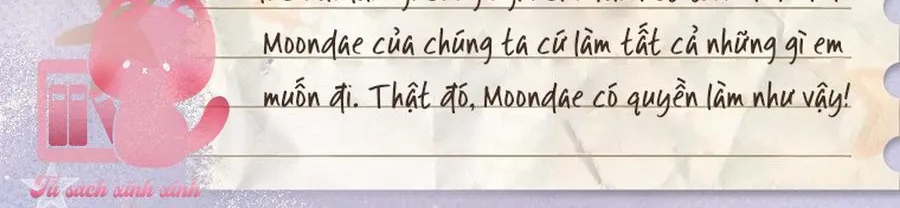 Moondae của chúng ta cứ làm tất cả những gì em
muốn đi. Thật đó, Moondae có quyền làm như vậy!
Tủ sách xinh xinh